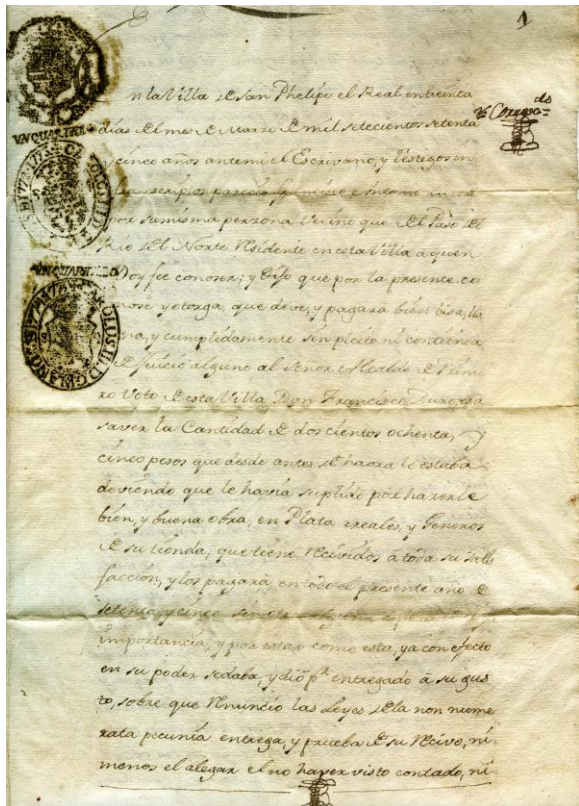 1
n la Villa de San Phelipe el Real en treinta
dias del mes de Marzo de mil setecientos setenta
y cinco años ante mi el Escrivano, y testigos in
parecio
por su misma perzona Vecino que del Paso del
Rio del Norte Residente en esta Villa a quien
Doy fee conoser; y Dijo que por la presente co
nose y otorga, que deve, y pagará bien lisa, lla
na, y cumplidamente sin pleito ni contienda
de Juicio alguno al Señor Alcalde de Prime
ro Voto de esta Villa Don Francisco Duro, a
saver la Cantidad de dos cientos ochenta, y
cinco pesos que desde antes de haora le estaba
deviendo que le havia suplido por hazerle
bien, y buena obra, en Plata reales, y Generos
de su tienda, que tiene Recividos a toda su satis
facción, y los pagará en todo el presente año de
setenta, y cinco
importancia, y por estar como esta, ya con efecto
en su poder se daba, y dió pr. entregado á su gus
to, sobre que Renuncio las Leyes de la non nume
rata pecunia entrega y prueba de su Recivo, ni
menos el alegar el no haver visto contado, ni
VN QUARTILLO
VN QUARTILLO
CAROLUS III D G HISPAN